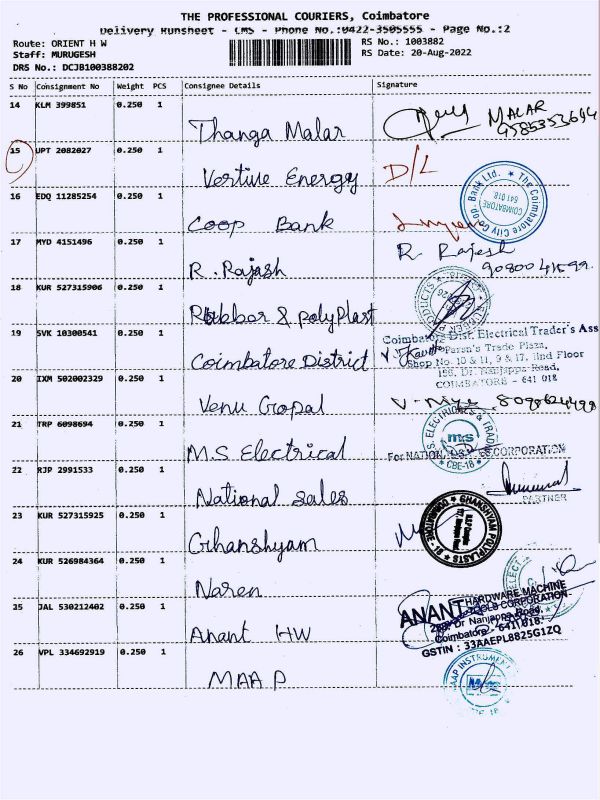 THE PROFESSIONAL COURIERS, Coimbatore
Delivery Runsheet - CMS - Phone No.:0422-3505555 - Page No.:2
Route: ORIENT H W
RS No.: 1003882
Staff: MURUGESH
RS Date: 20-Aug-2022
DRS No.: DCJB100388202
S No Consignment No Weight PCS Consignee Details Signature
14 KLM 399851 0.250 1
Thanga Malar MALAR
9585353694
15 UPT 2082027 0.250 1
Vertive Energy D/L
16 EDQ 11285254 0.250 1
Coop Bank
The Coimbatore City Co.op. Bank Ltd.
COIMBATORE
641 018
17 MYD 4151496 0.250 1
R. Rajash R. Rajesh
18 KUR 527315906 0.250 1
Rubbor & polyPlast
19 SVK 10300541 0.250 1
Coimbatore District
Coimbatore Dist. Electrical Trader's Ass
Parsn's Trade Plaza,
Shop No. 10 & 11, 9 & 17, IInd Floor
Dr. Nanjappa Road,
COIMBATORE - 641 018
20 IXM 502002329 0.250 1
Venu Gopal
21 TRP 6098694 0.250 1
M.S Electrical
m&s
CBE-18
22 RJP 2991533 0.250 1
National sales
For NATIONAL SALES CORPORATION
PARTNER
23 KUR 527315925 0.250 1
Ghanshyam
GHANSHYAM POLYPLASTS
24 KUR 526984364 0.250 1
Naren
25 JAL 530212402 0.250 1
Anant HW
ANANT HARDWARE MACHINE
TOOLS CORPORATION
Dr Nanjappa Road,
Coimbatore - 641 018.
GSTIN : 33AAEPL8825G1ZQ
26 VPL 334692919 0.250 1
MAAP
MAAP INSTRUMENT